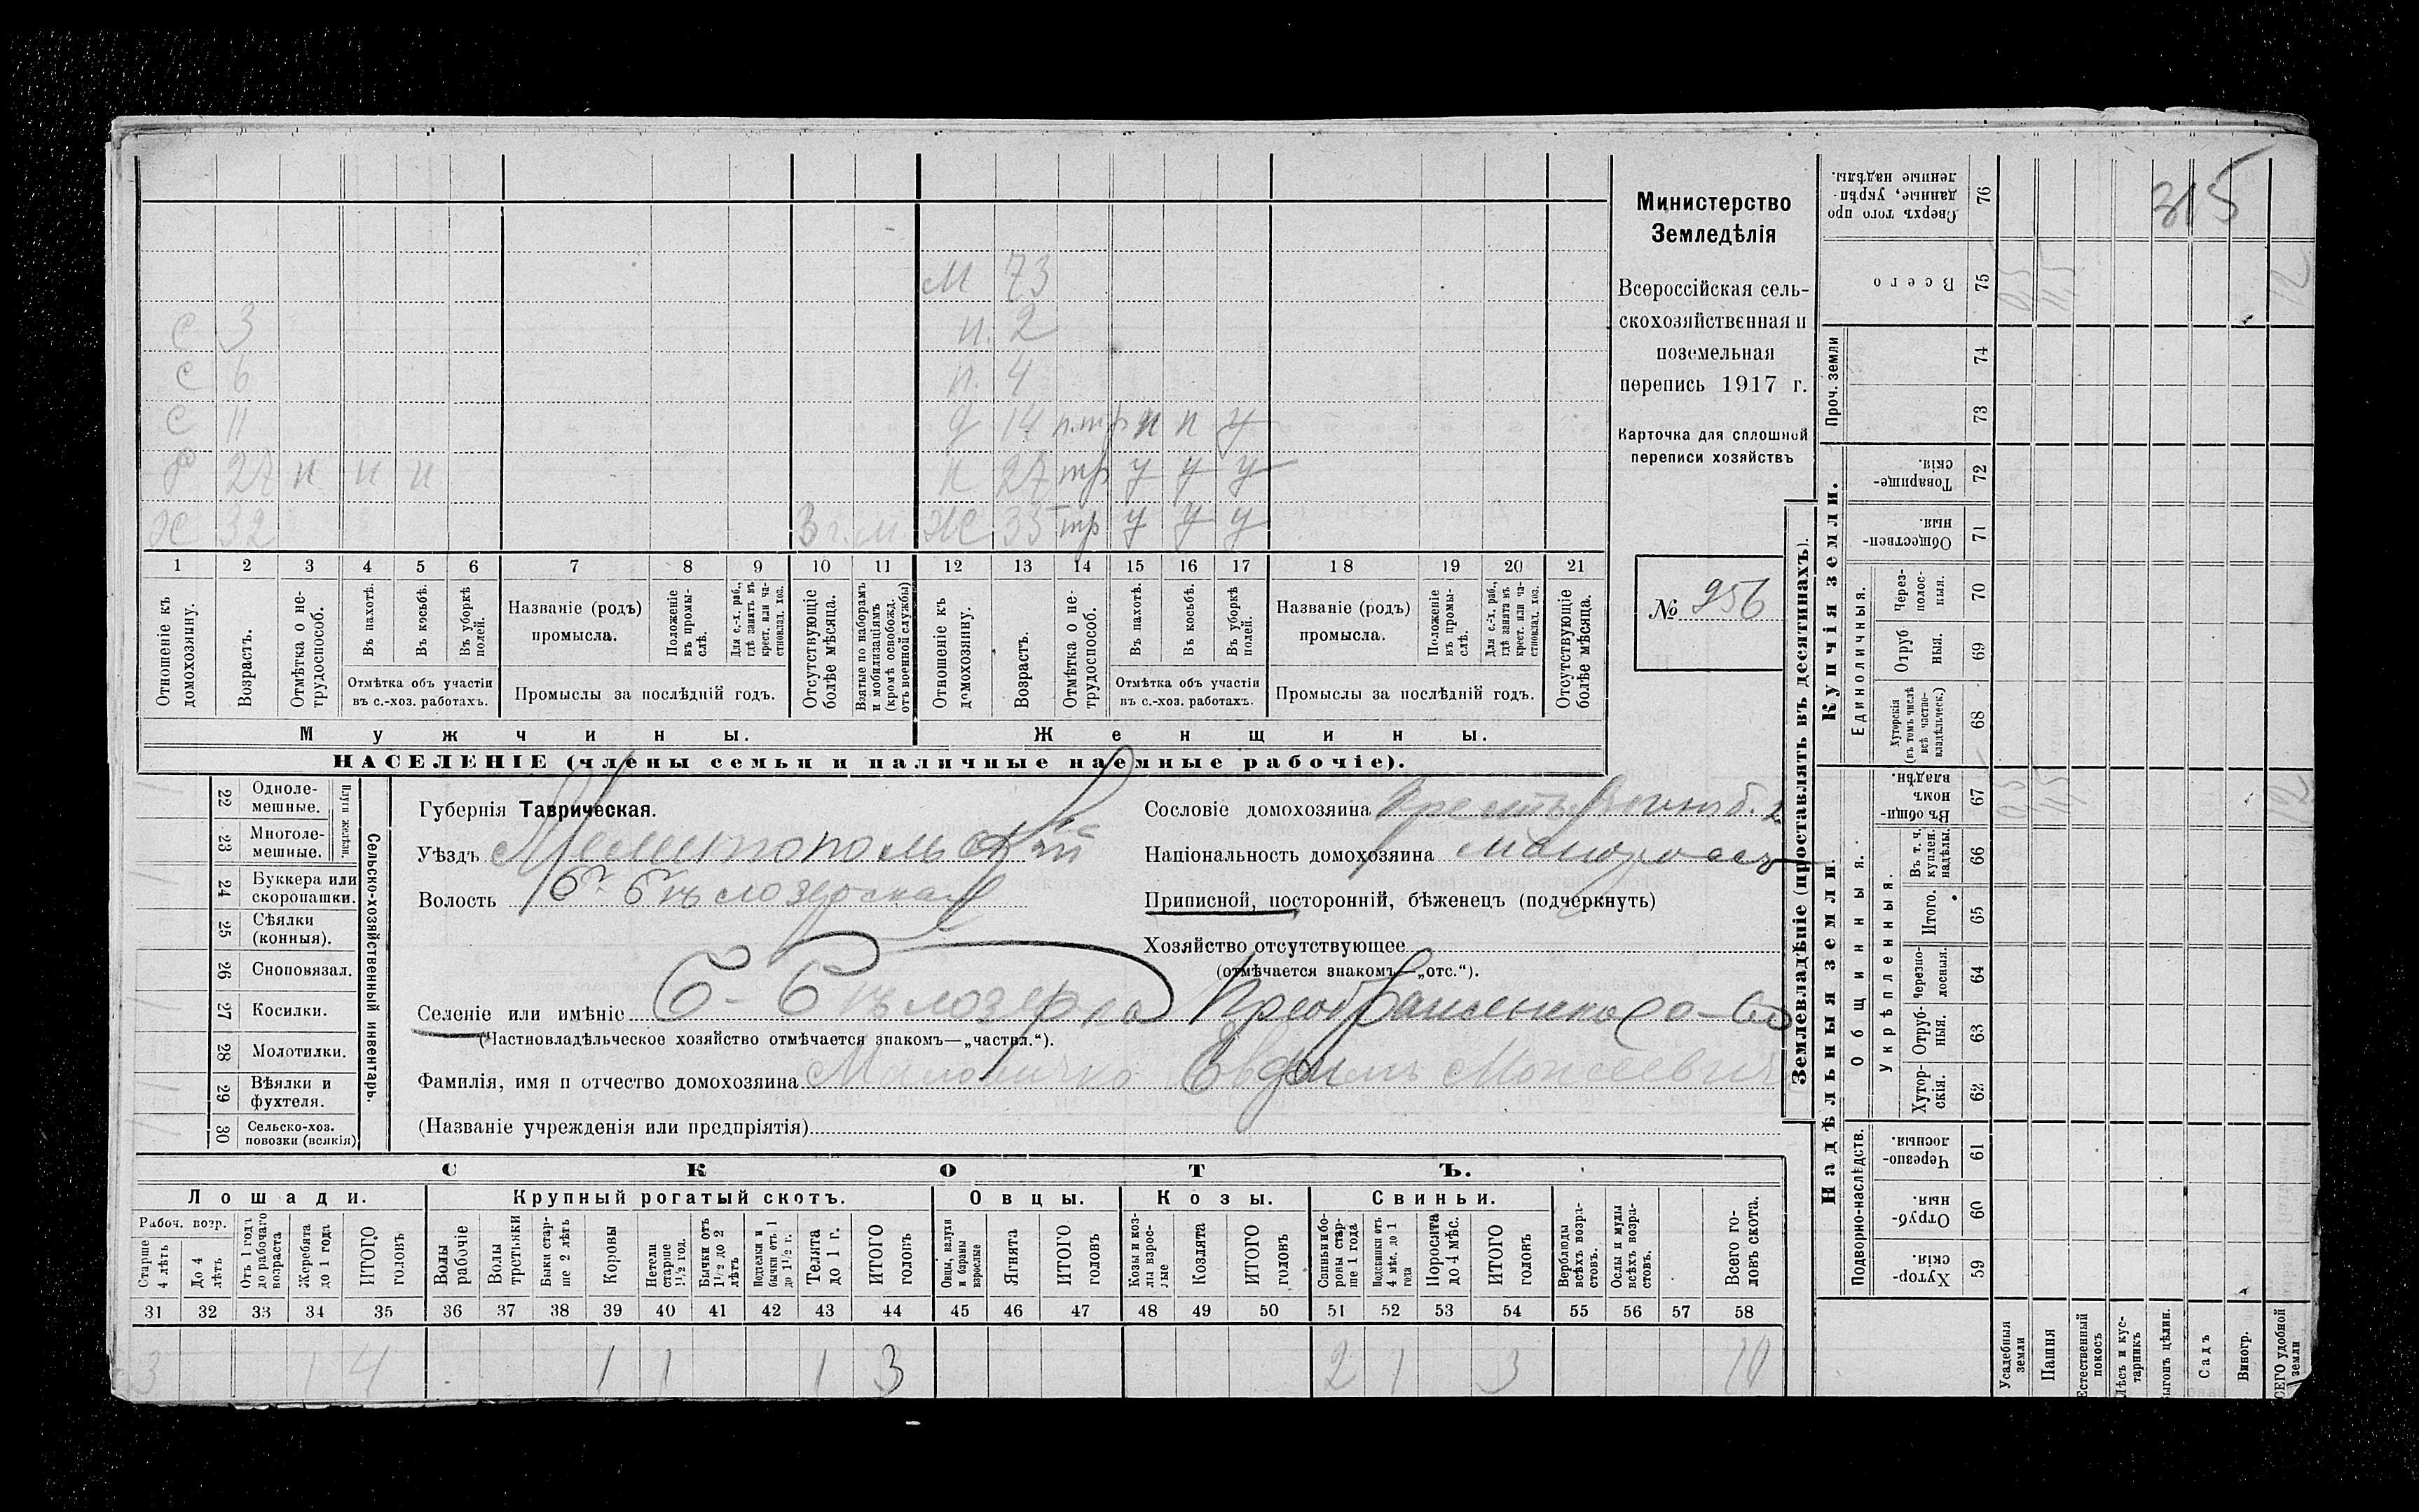 315
М 73
С 3
п. 2
С 6
п. 4
С 11
д 14 п п у
Б 27 н н н
н 27 тр у у у
Ж 32
3 г. м.
Ж 33 тр у у у
1 2 3 4 5 6 7 8 9 10 11 12 13 14 15 16 17 18 19 20 21
Отношеніе къ домохозяину.
Возрастъ.
Отмѣтка о не-трудоспособ.
Въ пахотѣ.
Въ косьбѣ.
Въ уборкѣ полей.
Отмѣтка объ участіи
въ с.-хоз. работахъ.
Названіе (родъ)
промысла.
Положеніе въ промы-слѣ.
Для с.-х. раб., гдѣ занятъ въ крест. или ча-стновлад. хоз.
Промыслы за послѣдній годъ.
Отсутствующіе болѣе мѣсяца.
Взятые по наборамъ и мобилизаціямъ (кромѣ освобожд. отъ военной службы)
Отношеніе къ домохозяину.
Возрастъ.
Отмѣтка о не-трудоспособ.
Въ пахотѣ.
Въ косьбѣ.
Въ уборкѣ полей.
Отмѣтка объ участіи
въ с.-хоз. работахъ.
Названіе (родъ)
промысла.
Положеніе въ промы-слѣ.
Для с.-х. раб., гдѣ занята въ крест. или ча-стновлад. хоз.
Промыслы за послѣдній годъ.
Отсутствующіе болѣе мѣсяца.
Мужчины.
Женщины.
НАСЕЛЕНІЕ (члены семьи и наличные наемные рабочіе).
Министерство
Земледѣлія
Всероссійская сель-
скохозяйственная и
поземельная
перепись 1917 г.
Карточка для сплошной
переписи хозяйствъ
№ 956
22 Одноле-мешные.
23 Многоле-мешные.
Плуги желѣзн.
24 Буккера или скоропашки.
25 Сѣялки (конныя).
26 Сноповязал.
27 Косилки.
28 Молотилки.
29 Вѣялки и фухтеля.
30 Сельско-хоз. повозки (всякія)
Сельско-хозяйственный инвентарь.
Губернія Таврическая.
Уѣздъ Мелитопольскій
Волость Б-Бѣлозерская
Сословіе домохозяина
Національность домохозяина малороссъ
Приписной, посторонній, бѣженецъ (подчеркнуть)
Хозяйство отсутствующее
(отмѣчается знакомъ—„отс.“).
Селеніе или имѣніе Б-Бѣлозерка
(Частновладѣльческое хозяйство отмѣчается знакомъ—„частвл.“).
Фамилія, имя и отчество домохозяина Моисеевичъ
(Названіе учрежденія или предпріятія)
СКОТЪ.
Лошади.
Крупный рогатый скотъ.
Овцы.
Козы.
Свиньи.
Рабоч. возр.
Старше 4 лѣтъ
До 4 лѣтъ
Отъ 1 года до рабочаго возраста
Жеребята до 1 года
ИТОГО головъ
Волы рабочіе
Волы третьяки
Быки стар-ше 2 лѣтъ
Коровы
Нетели старше 1½ год.
Бычки отъ 1½ до 2 лѣтъ
Подтелки и бычки отъ 1 до 1½ г.
Телята до 1 г.
ИТОГО головъ
Овцы, валухи и бараны взрослые
Ягнята
ИТОГО головъ
Козы и коз-лы взрос-лые
Козлята
ИТОГО головъ
Свиньи и бо-ровы стар-ше 1 года
Подсвинки отъ 4 мѣс. до 1 года
Поросята до 4 мѣс.
ИТОГО головъ
Верблюды всѣхъ возра-стовъ.
Ослы и мулы всѣхъ возра-стовъ.
Всего го-ловъ скота.
31 32 33 34 35 36 37 38 39 40 41 42 43 44 45 46 47 48 49 50 51 52 53 54 55 56 57 58
3 1 4 1 1 1 3 2 1 3 10
Землевладѣніе (проставлять въ десятинахъ).
Купчія земли.
Надѣльныя земли.
Сверхъ того про даннные, укрѣп-ленные надѣлы. 76
Всего 75
Проч. земли
74
73
Товарище-скія. 72
Обществен-ныя. 71
Единоличныя.
Через-полос-ныя. 70
Отруб ныя. 69
Хуторскія (въ томъ числѣ всѣ частно-владѣльческ.) 68
Общинныя.
Въ общи номъ владѣн. 67
Укрѣпленныя.
Въ т. ч. куплен. надѣлы. 66
Итого. 65
Черезпо-лосныя. 64
Отруб-ныя. 63
Хутор-скія. 62
Подворно-наслѣдств.
Черезпо-лосныя. 61
Отруб-ныя. 60
Хутор-скія. 59
Усадебныя земли
Пашня
Естественный покосъ
Лѣсъ и кус-тарникъ
Выгонъ цѣлин.
Садъ
Виногр.
ВСЕГО удобной земли